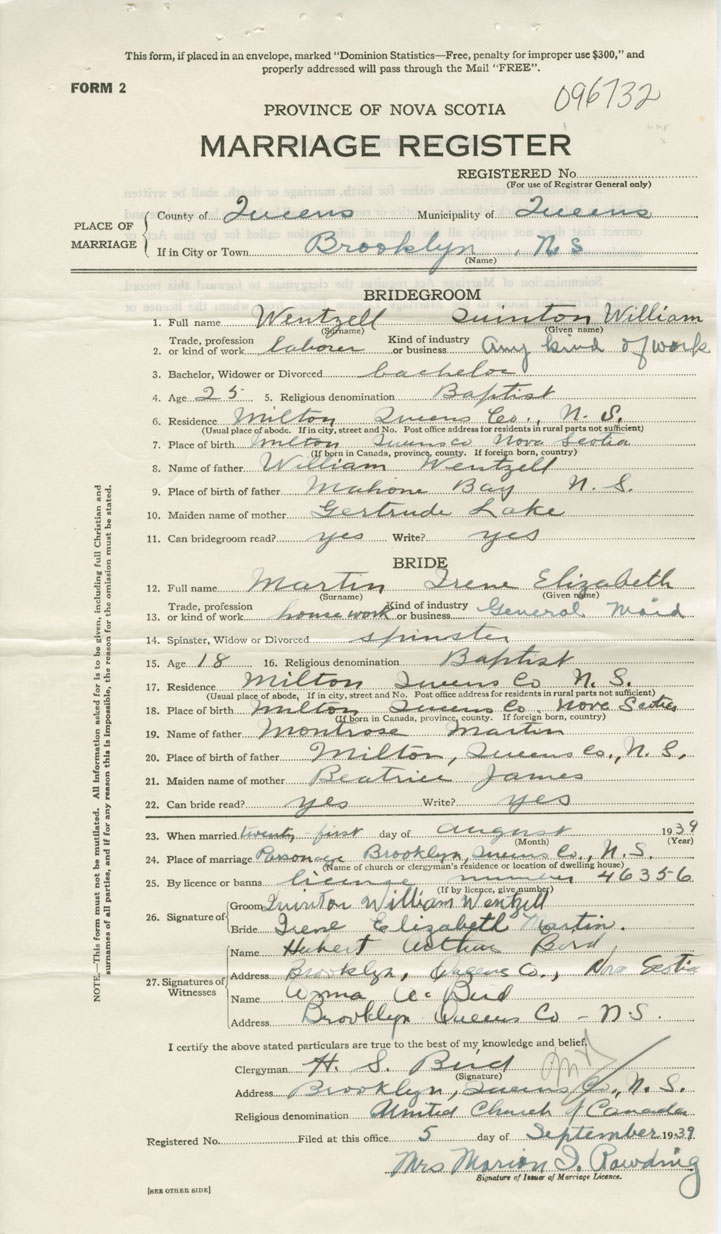 This form, if placed in an envelope, marked "Dominion Statistics—Free, penalty for improper use $300," and
properly addressed will pass through the Mail "FREE".
FORM 2
096732
PROVINCE OF NOVA SCOTIA
MARRIAGE REGISTER
REGISTERED No.
(For use of Registrar General only)
PLACE OF MARRIAGE
County of Queens Municipality of Queens
If in City or Town Brooklyn, N S
(Name)
BRIDEGROOM
1. Full name Wentzell Quinton William
(Surname) (Given name)
2. Trade, profession or kind of work laborer Kind of industry or business Any kind of work
3. Bachelor, Widower or Divorced bachelor
4. Age 25 5. Religious denomination Baptist
6. Residence Milton Queens Co., N. S.
(Usual place of abode. If in city, street and No. Post office address for residents in rural parts not sufficient)
7. Place of birth Milton Queens co Nova Scotia
(If born in Canada, province, county. If foreign born, country)
8. Name of father William Wentzell
9. Place of birth of father Mahone Bay N. S.
10. Maiden name of mother Gertrude Lake
11. Can bridegroom read? yes Write? yes
BRIDE
12. Full name Martin Irene Elizabeth
(Surname) (Given name)
13. Trade, profession or kind of work house work Kind of industry or business General Maid
14. Spinster, Widow or Divorced spinster
15. Age 18 16. Religious denomination Baptist
17. Residence Milton Queens Co N. S.
(Usual place of abode, If in city, street and No. Post office address for residents in rural parts not sufficient)
18. Place of birth Milton Queens Co. Nova Scotia
(If born in Canada, province, county. If foreign born, country)
19. Name of father Montrose Martin
20. Place of birth of father Milton, Queens Co., N. S.
21. Maiden name of mother Beatrice James
22. Can bride read? yes Write? yes
23. When married twenty-first day of August 1939
(Month) (Year)
24. Place of marriage Parsonage Brooklyn, Queens Co., N. S.
(Name of church or clergyman's residence or location of dwelling house)
25. By licence or banns license number 46356
(If by licence, give number)
26. Signature of
Groom Quinton William Wentzell
Bride Irene Elizabeth Martin.
27. Signatures of Witnesses
Name Hubert Arthur Bird
Address Brooklyn, Queens Co., Nova Scotia
Name A. Bird
Address Brooklyn Queens Co - N S.
I certify the above stated particulars are true to the best of my knowledge and belief.
Clergyman H. S. Bird
(Signature)
Address Brooklyn, Queens Co., N. S.
Religious denomination United Church of Canada
Registered No. Filed at this office 5 day of September 1939
Mrs Marion I. Rawding
Signature of Issuer of Marriage Licence.
[SEE OTHER SIDE]
NOTE.—This form must not be mutilated. All Information asked for is to be given, including full Christian and
surnames of all parties, and if for any reason this is impossible, the reason for the omission must be stated.